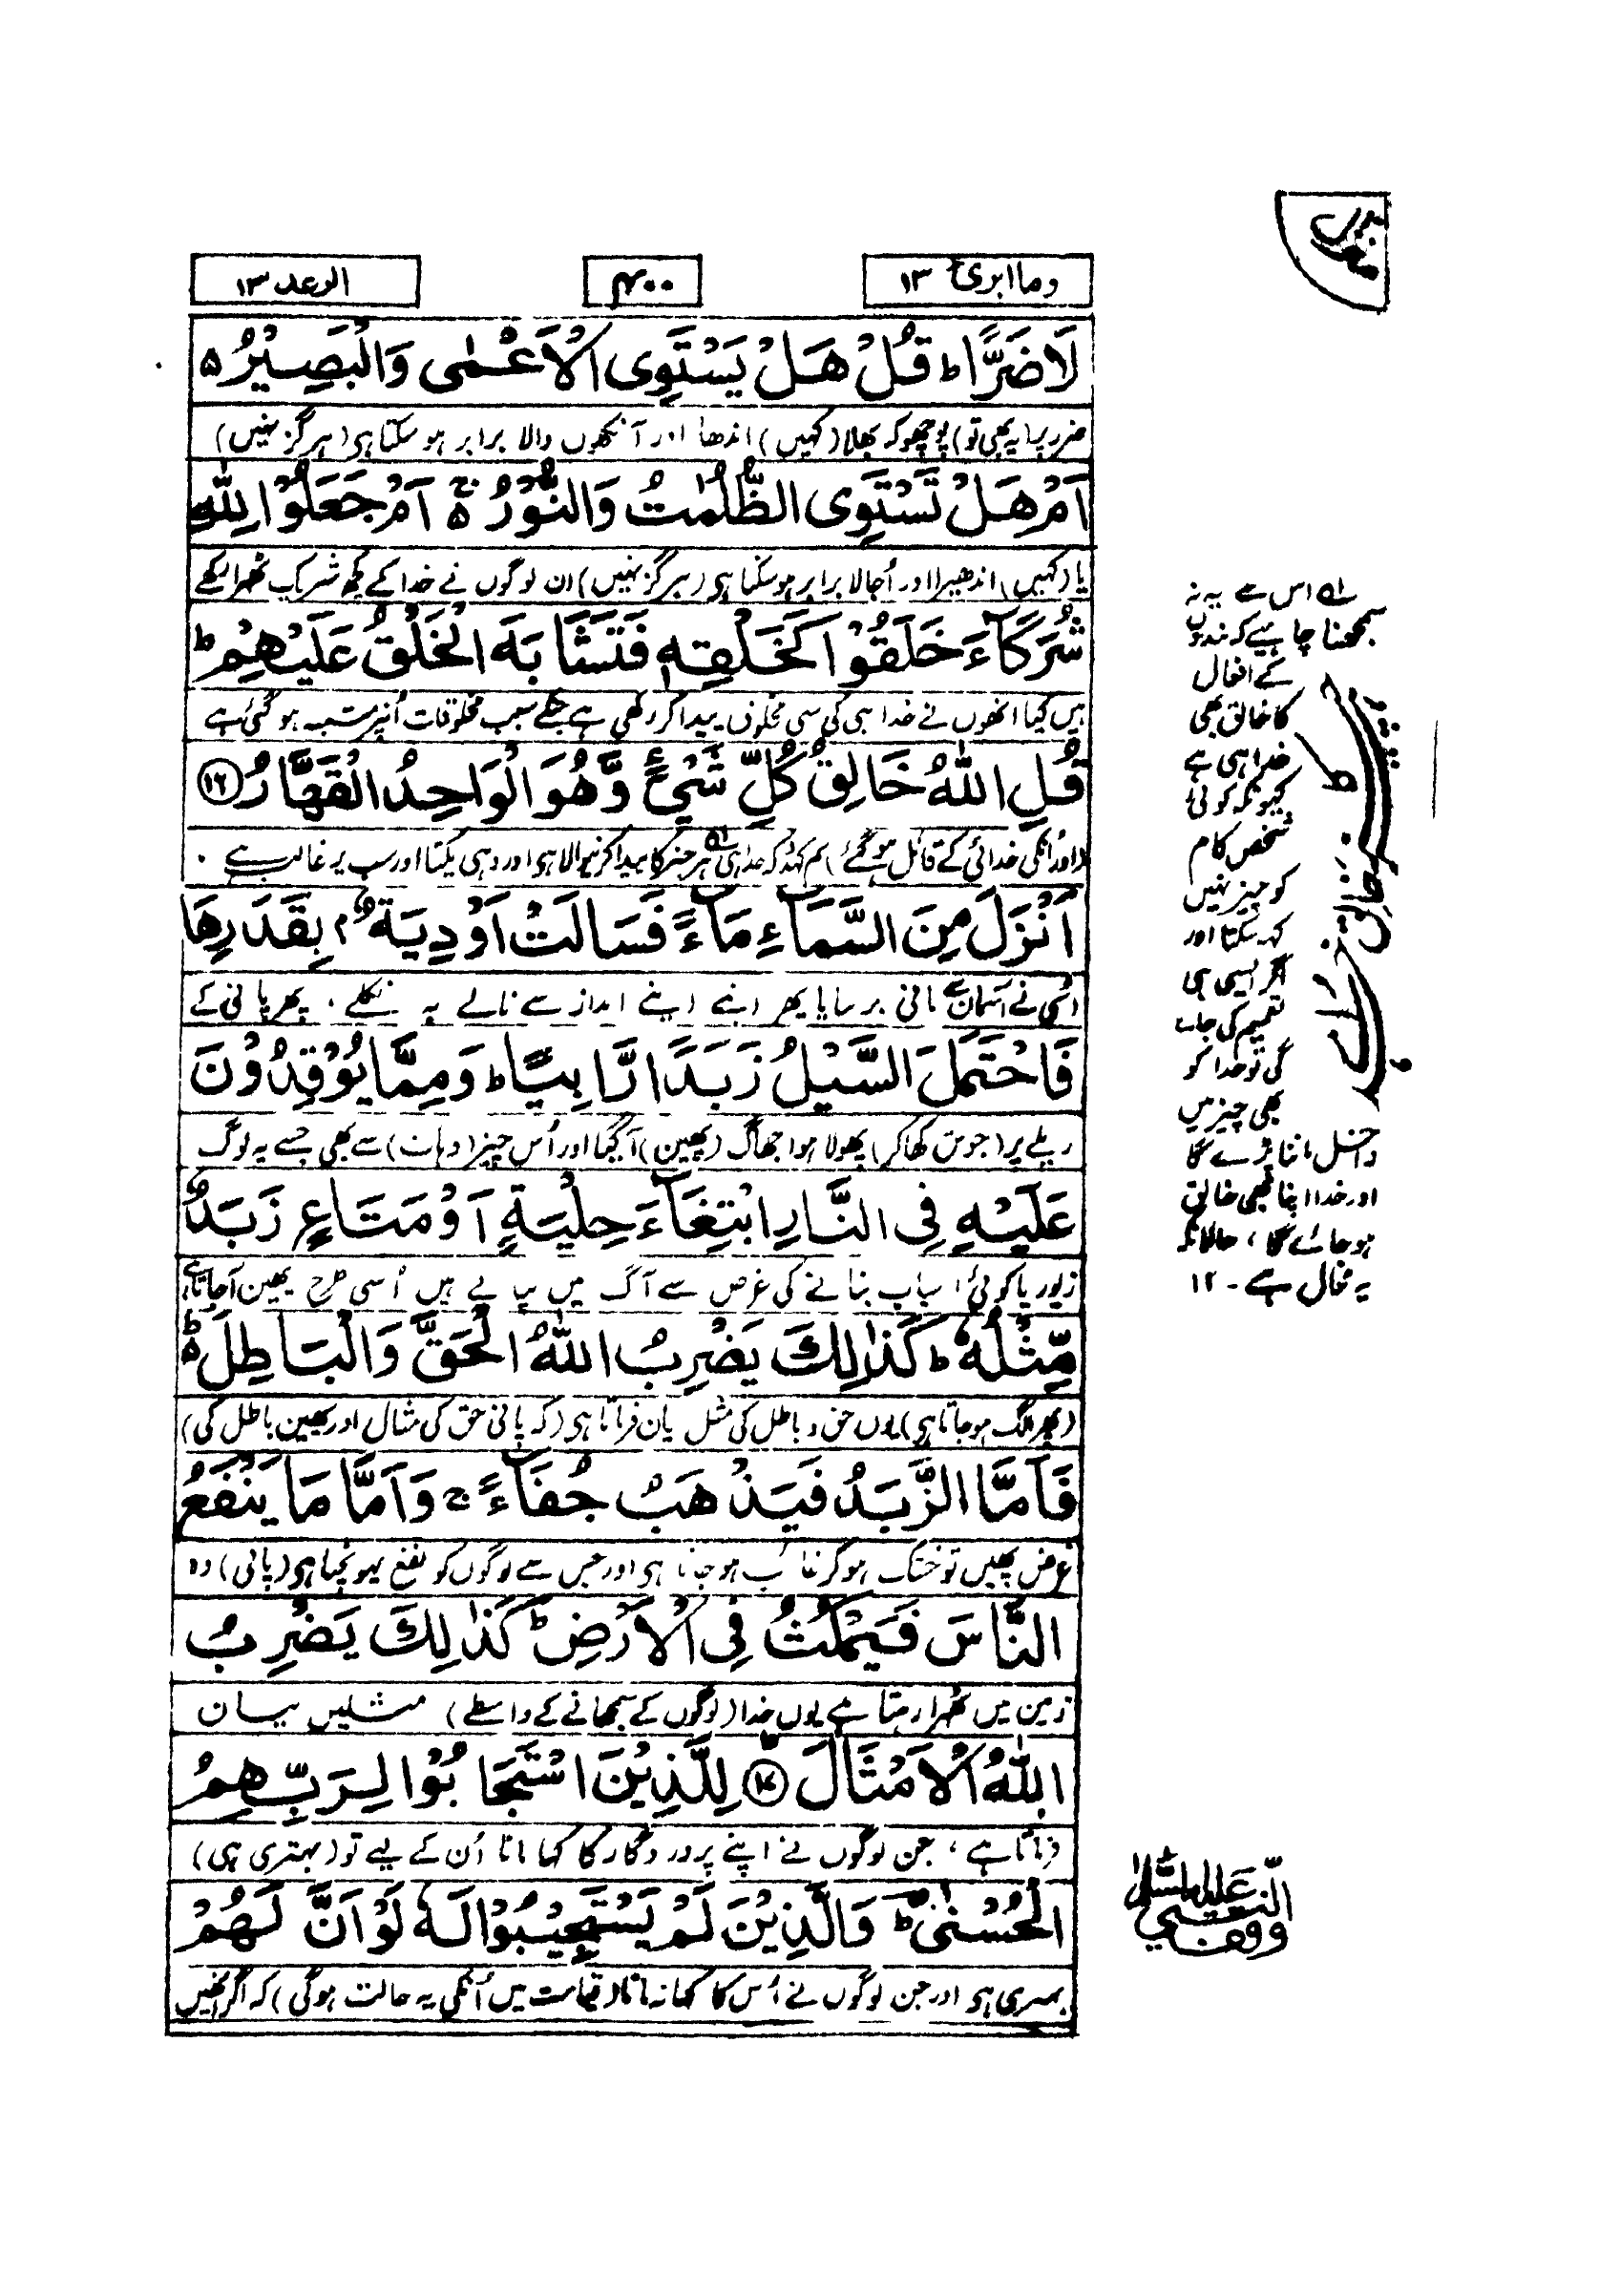 وما ابرئ ۱۳
۴۰۰
الرعد ۱۳
لَا ضَرًّا ط قُلْ هَلْ يَسْتَوِى الْاَعْمٰى وَالْبَصِيْرُ ۵
ضرر پر (یہ بھی تو) پوچھو کہ بھلا (کہیں) اندھا اور آنکھوں والا برابر ہو سکتا ہی (ہرگز نہیں)
اَمْ هَلْ تَسْتَوِى الظُّلُمٰتُ وَالنُّوْرُ ۵ ج اَمْ جَعَلُوْا لِلّٰهِ
یا (کہیں) اندھیرا اور اُجالا برابر ہو سکتا ہی (ہرگز نہیں) ان لوگوں نے خدا کے کچھ شریک ٹھرا رکھے
شُرَكَآءَ خَلَقُوْا كَخَلْقِهٖ فَتَشَابَهَ الْخَلْقُ عَلَيْهِمْ ط
ہیں کیا انھوں نے خدا ہی کی سی مخلوق پیدا کر رکھی ہے جسکے سبب مخلوقات اُنپر مشتبہ ہو گئی ہے
قُلِ اللّٰهُ خَالِقُ كُلِّ شَيْءٍ وَّهُوَ الْوَاحِدُ الْقَهَّارُ ۱۶
(اور انکی خدائی کے قائل ہو گئے) تم کہدو کہ خدا ہی ہر چیز کا پیدا کرنیوالا ہی اور وہی یکتا اور سب پر غالب ہے .
اَنْزَلَ مِنَ السَّمَآءِ مَآءً فَسَالَتْ اَوْدِيَةٌ ۢ بِقَدَرِهَا
اُسی نے آسمان سے پانی برسایا پھر اپنے اپنے انداز سے نالے بہ نکلے . پھر پانی کے
فَاحْتَمَلَ السَّيْلُ زَبَدًا رَّابِيًا ط وَمِمَّا يُوْقِدُوْنَ
ریلے پر (جوش کھا کر) پھولا ہوا جھاگ (پھین) آ گیا اور اُس چیز (دھات) سے بھی جسے یہ لوگ
عَلَيْهِ فِى النَّارِ ابْتِغَآءَ حِلْيَةٍ اَوْ مَتَاعٍ زَبَدٌ
زیور یا کوئی اسباب بنانے کی غرض سے آگ میں تپاتے ہیں اُسی طرح پھین آ جاتا ہے
مِّثْلُهٗ ط كَذٰلِكَ يَضْرِبُ اللّٰهُ الْحَقَّ وَالْبَاطِلَ ۵ ط
(پھر الگ ہو جاتا ہی) یوں حق و باطل کی مثل بیان فرماتا ہی (کہ پانی حق کی مثال اور پھین باطل کی)
فَاَمَّا الزَّبَدُ فَيَذْهَبُ جُفَآءً ج وَاَمَّا مَا يَنْفَعُ
غرض پھین تو خشک ہو کر غائب ہو جاتا ہی اور جس سے لوگوں کو نفع پہونچتا ہی (پانی) وہ
النَّاسَ فَيَمْكُثُ فِى الْاَرْضِ ط كَذٰلِكَ يَضْرِبُ
زمین میں ٹھرا رہتا ہے یوں خدا (لوگوں کے سمجھانے کے واسطے) مثلیں بیان
اللّٰهُ الْاَمْثَالَ ۱۷ ط لِلَّذِيْنَ اسْتَجَابُوْا لِرَبِّهِمُ
فرماتا ہے ، جن لوگوں نے اپنے پروردگار کا کہا مانا اُن کے لیے تو (بہتری ہی)
الْحُسْنٰى ط وَالَّذِيْنَ لَمْ يَسْتَجِيْبُوْا لَهٗ لَوْ اَنَّ لَهُمْ
بہتری ہی اور جن لوگوں نے اُس کا کہا نہ مانا (قیامت میں اُنکی یہ حالت ہوگی) کہ اگر انھیں
اس سے یہ نہ
سمجھنا چاہیے کہ بندوں
کے افعال
کا خالق بھی
خدا ہی ہے
کیونکہ کوئی
شخص کام
کو چیز نہیں
کہہ سکتا اور
اگر ایسی ہی
تعمیم کی جائے
گی تو خدا کو
بھی چیز میں
داخل ماننا پڑے گا
اور خدا اپنا بھی خالق
ہو جائے گا ، حالانکہ
یہ محال ہے - ۱۲
وقف النبی علیہ السلام